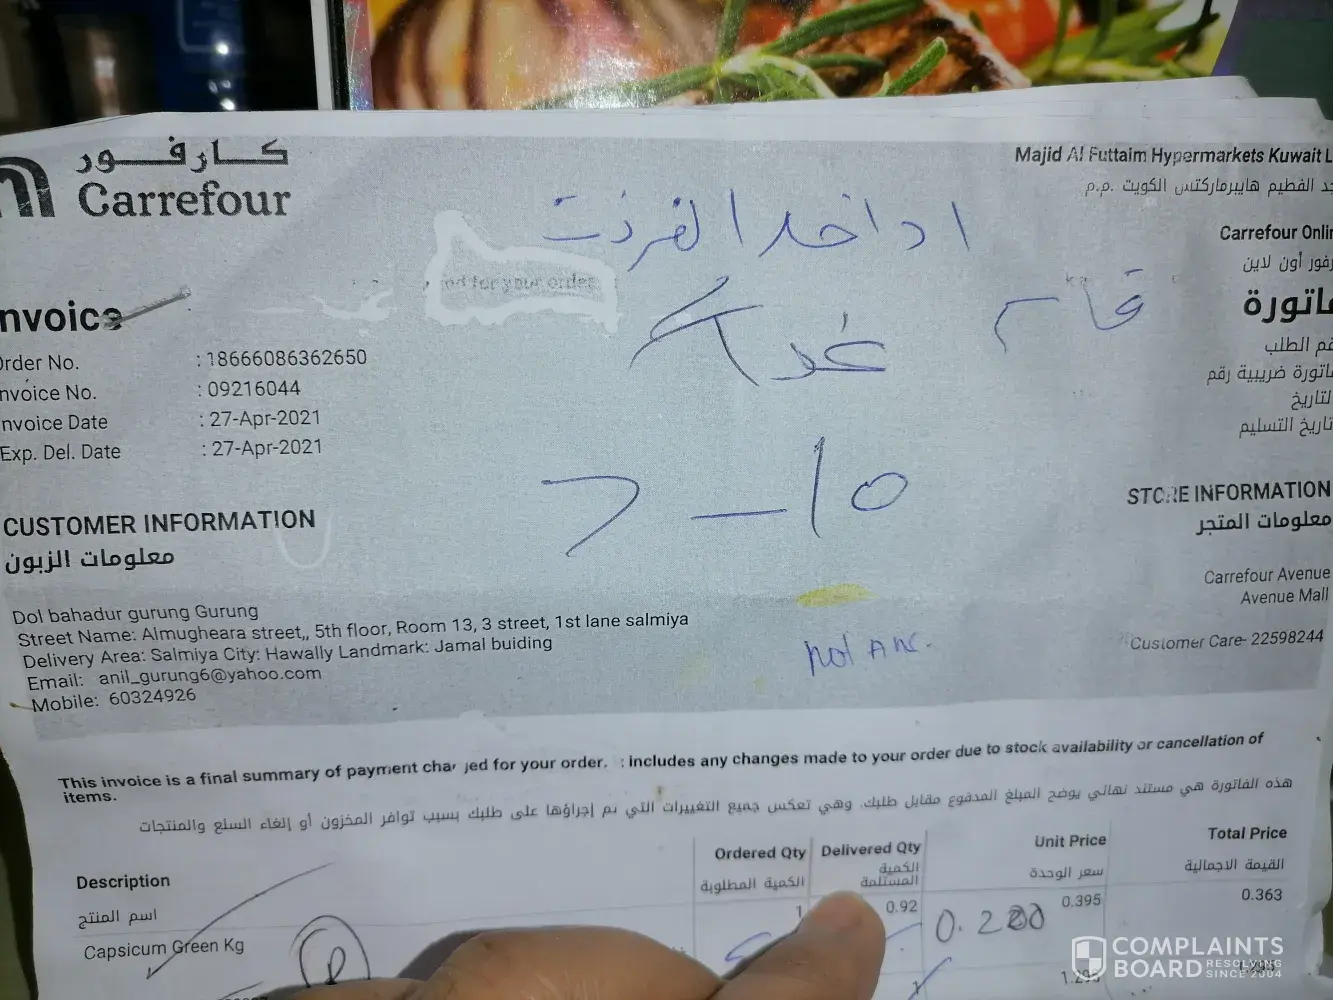 كارفور
Carrefour
Majid Al Futtaim Hypermarkets Kuwait
الفطيم هايبرماركتس الكويت .م.م
Carrefour Onlin
رفور أون لاين
ا د ا خد ا لفرذت
nvoice
فاتورة
غدا
Order No. : 18666086362650
قم الطلب
nvoice No. : 09216044
فاتورة ضريبية رقم
nvoice Date : 27-Apr-2021
لتاريخ
Exp. Del. Date : 27-Apr-2021
تاريخ التسليم
CUSTOMER INFORMATION
معلومات الزبون
STORE INFORMATION
معلومات المتجر
Carrefour Avenue
Avenue Mall
Customer Care- 22598244
Dol bahadur gurung Gurung
Street Name: Almugheara street,, 5th floor, Room 13, 3 street, 1st lane salmiya
Delivery Area: Salmiya City: Hawally Landmark: Jamal buiding
Email: anil_gurung6@yahoo.com
Mobile: 60324926
not Ans.
This invoice is a final summary of payment cha jed for your order. : includes any changes made to your order due to stock availability or cancellation of
items.
هذه الفاتورة هي مستند نهائي يوضح المبلغ المدفوع مقابل طلبك. وهي تعكس جميع التغييرات التي تم إجراؤها على طلبك بسبب توافر المخزون أو إلغاء السلع والمنتجات
Description Ordered Qty Delivered Qty Unit Price Total Price
اسم المنتج الكمية المطلوبة الكمية المستلمة سعر الوحدة القيمة الاجمالية
Capsicum Green Kg 1 0.92 0.395 0.363
0.280
COMPLAINTS
BOARD RESOLVING SINCE 2004